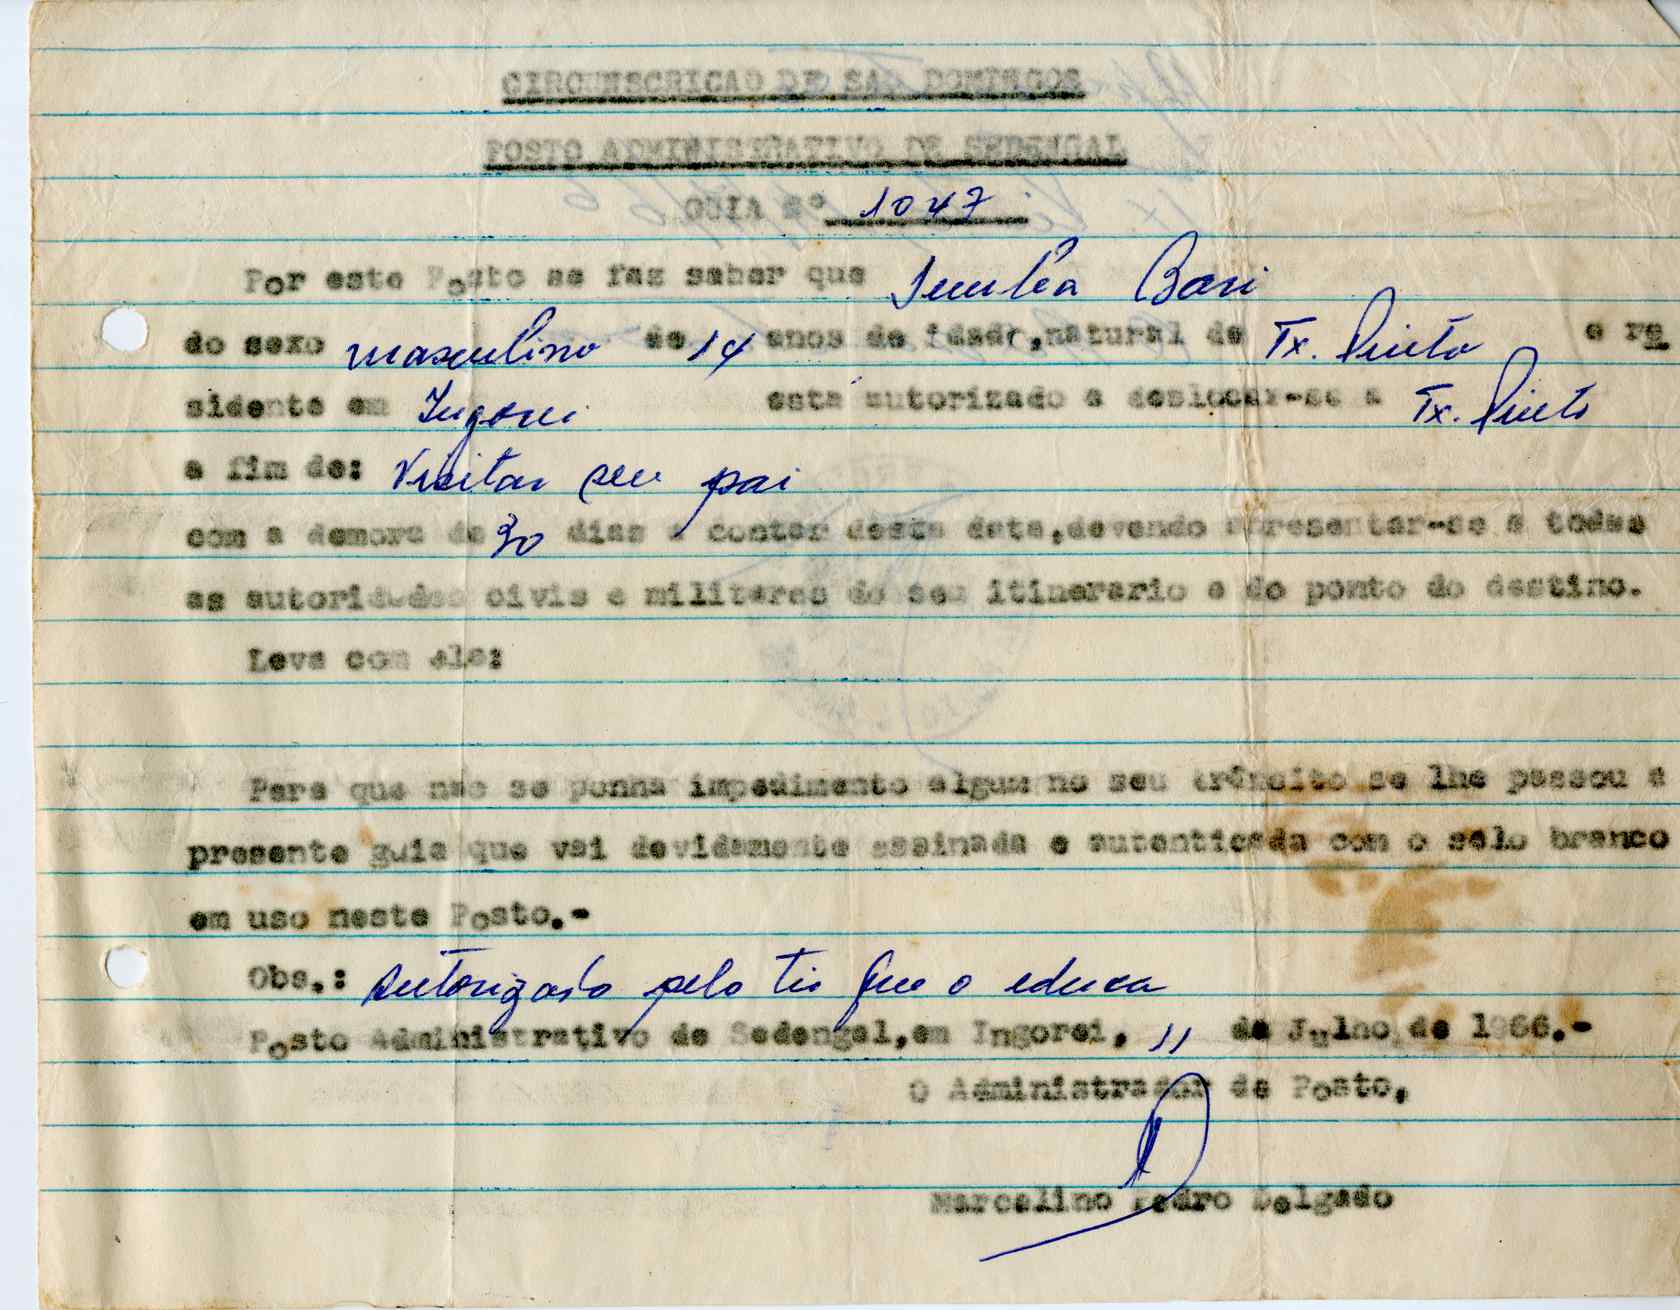 CIRCUNSCRICAO DE SAO DOMINGOS
POSTO ADMINISTRATIVO DE SEDENGAL
GUIA Nº 1047
Por este Posto se faz saber que Bari
do sexo masculino de 14 anos de idade,natural de Tx. Pinto e re
sidente em Ingorei está autorizado a deslocar-se a Tx. Pinto
a fim de: Visitar seu pai
com a demora de 30 dias a contar desta data,devendo apresentar-se a todas
as autoridades civis e militares do seu itinerario e do ponto do destino.
Leva com ele:
Para que nao se ponha impedimento algum no seu trânsito se lhe passou a
presente guia que vai devidamente assinada e autenticada com o selo branco
em uso neste Posto.-
Obs.: Autorizado pelo tio que o educa
Posto Administrativo de Sedengal,em Ingorei, 11 de Julho de 1966.-
O Administrador de Posto,
Marcelino Pedro Delgado